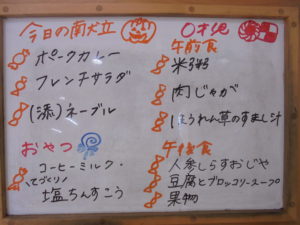 今日の献立
ポークカレー
フレンチサラダ
(添)ネーブル
おやつ
コーヒーミルク・
てづくり
塩ちんすこう
0才児
午前食
米粥
肉じゃが
ほうれん草のすまし汁
午後食
人参しらすおじや
豆腐とブロッコリースープ
果物